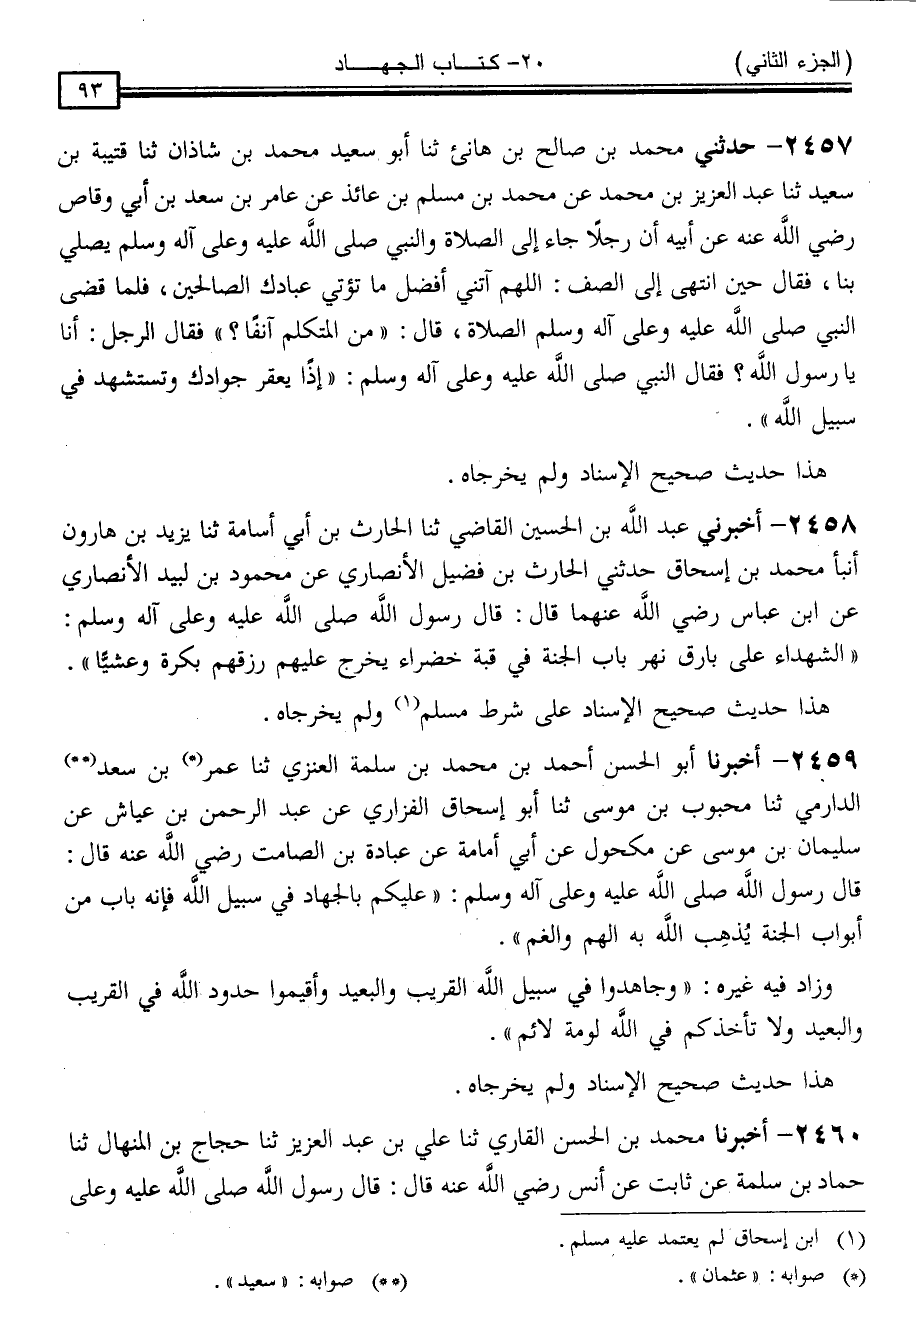 (الجزء الثاني)
٢٠- كتـــاب الـجـهـــاد
٩٣
٢٤٥٧- حدثني محمد بن صالح بن هانئ ثنا أبو سعيد محمد بن شاذان ثنا قتيبة بن
سعيد ثنا عبد العزيز بن محمد عن محمد بن مسلم بن عائذ عن عامر بن سعد بن أبي وقاص
رضي اللَّه عنه عن أبيه أن رجلًا جاء إلى الصلاة والنبي صلى اللَّه عليه وعلى آله وسلم يصلي
بنا ، فقال حين انتهى إلى الصف : اللهم آتني أفضل ما تؤتي عبادك الصالحين ، فلما قضى
النبي صلى اللَّه عليه وعلى آله وسلم الصلاة ، قال : « من المتكلم آنفًا ؟ » فقال الرجل : أنا
يا رسول اللَّه ؟ فقال النبي صلى اللَّه عليه وعلى آله وسلم : « إذًا يعقر جوادك وتستشهد في
سبيل اللَّه » .
هذا حديث صحيح الإسناد ولم يخرجاه .
٢٤٥٨- أخبرني عبد اللَّه بن الحسين القاضي ثنا الحارث بن أبي أسامة ثنا يزيد بن هارون
أنبأ محمد بن إسحاق حدثني الحارث بن فضيل الأنصاري عن محمود بن لبيد الأنصاري
عن ابن عباس رضي اللَّه عنهما قال : قال رسول اللَّه صلى اللَّه عليه وعلى آله وسلم :
« الشهداء على بارق نهر باب الجنة في قبة خضراء يخرج عليهم رزقهم بكرة وعشيًّا » .
هذا حديث صحيح الإسناد على شرط مسلم(١) ولم يخرجاه .
٢٤٥٩- أخبرنا أبو الحسن أحمد بن محمد بن سلمة العنزي ثنا عمر(*) بن سعد(**)
الدارمي ثنا محبوب بن موسى ثنا أبو إسحاق الفزاري عن عبد الرحمن بن عياش عن
سليمان بن موسى عن مكحول عن أبي أمامة عن عبادة بن الصامت رضي اللَّه عنه قال :
قال رسول اللَّه صلى اللَّه عليه وعلى آله وسلم : « عليكم بالجهاد في سبيل اللَّه فإنه باب من
أبواب الجنة يُذهِب اللَّه به الهم والغم » .
وزاد فيه غيره : « وجاهدوا في سبيل اللَّه القريب والبعيد وأقيموا حدود اللَّه في القريب
والبعيد ولا تأخذكم في اللَّه لومة لائم » .
هذا حديث صحيح الإسناد ولم يخرجاه .
٢٤٦٠- أخبرنا محمد بن الحسن القاري ثنا علي بن عبد العزيز ثنا حجاج بن المنهال ثنا
حماد بن سلمة عن ثابت عن أنس رضي اللَّه عنه قال : قال رسول اللَّه صلى اللَّه عليه وعلى
(١) ابن إسحاق لم يعتمد عليه مسلم .
(*) صوابه : « عثمان » .
(**) صوابه : « سعيد » .